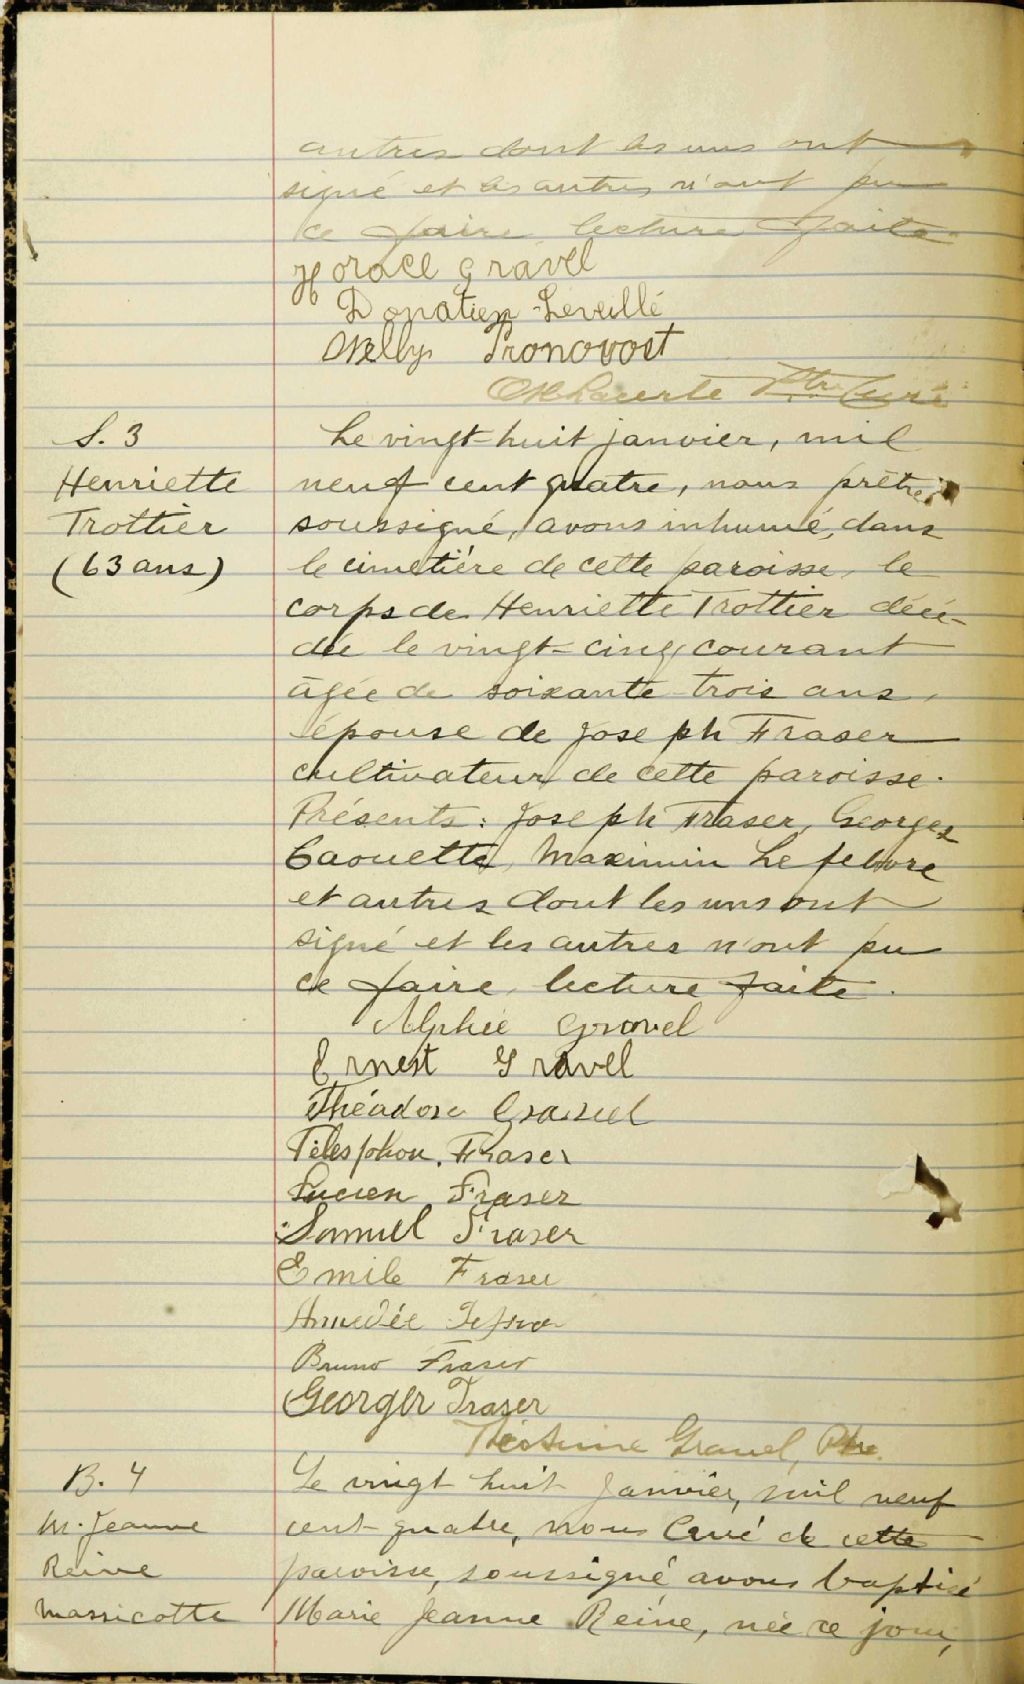 autres dont les uns ont
signé et les autres n'ont pu
ce faire, lecture faite.
Horace Gravel
Donatien Leveillé
Nellys Pronovost
Ptre Curé
S. 3
Henriette
Trottier
(63 ans)
Le vingt-huit janvier, mil
neuf cent quatre, nous prêtre
soussigné, avons inhumé, dans
le cimetière de cette paroisse, le
corps de Henriette Trottier décé-
dée le vingt-cinq courant
âgée de soixante-trois ans,
épouse de Joseph Fraser
cultivateur de cette paroisse.
Présents: Joseph Fraser, Georges
Caouette, Maximin Lefebvre
et autres dont les uns ont
signé et les autres n'ont pu
ce faire, lecture faite.
Alphée Gravel
Ernest Gravel
Théadore Gravel
Télesphore Fraser
Lucien Fraser
Samuel Fraser
Emile Fraser
Amedée
Bruno Fraser
Georger Fraser
Gravel, Ptre.
B. 4
M. Jeanne
Reine
Massicotte
Le vingt huit Janvier, mil neuf
cent quatre, nous Curé de cette
paroisse, soussigné avons baptisé
Marie Jeanne Reine, née ce jour,